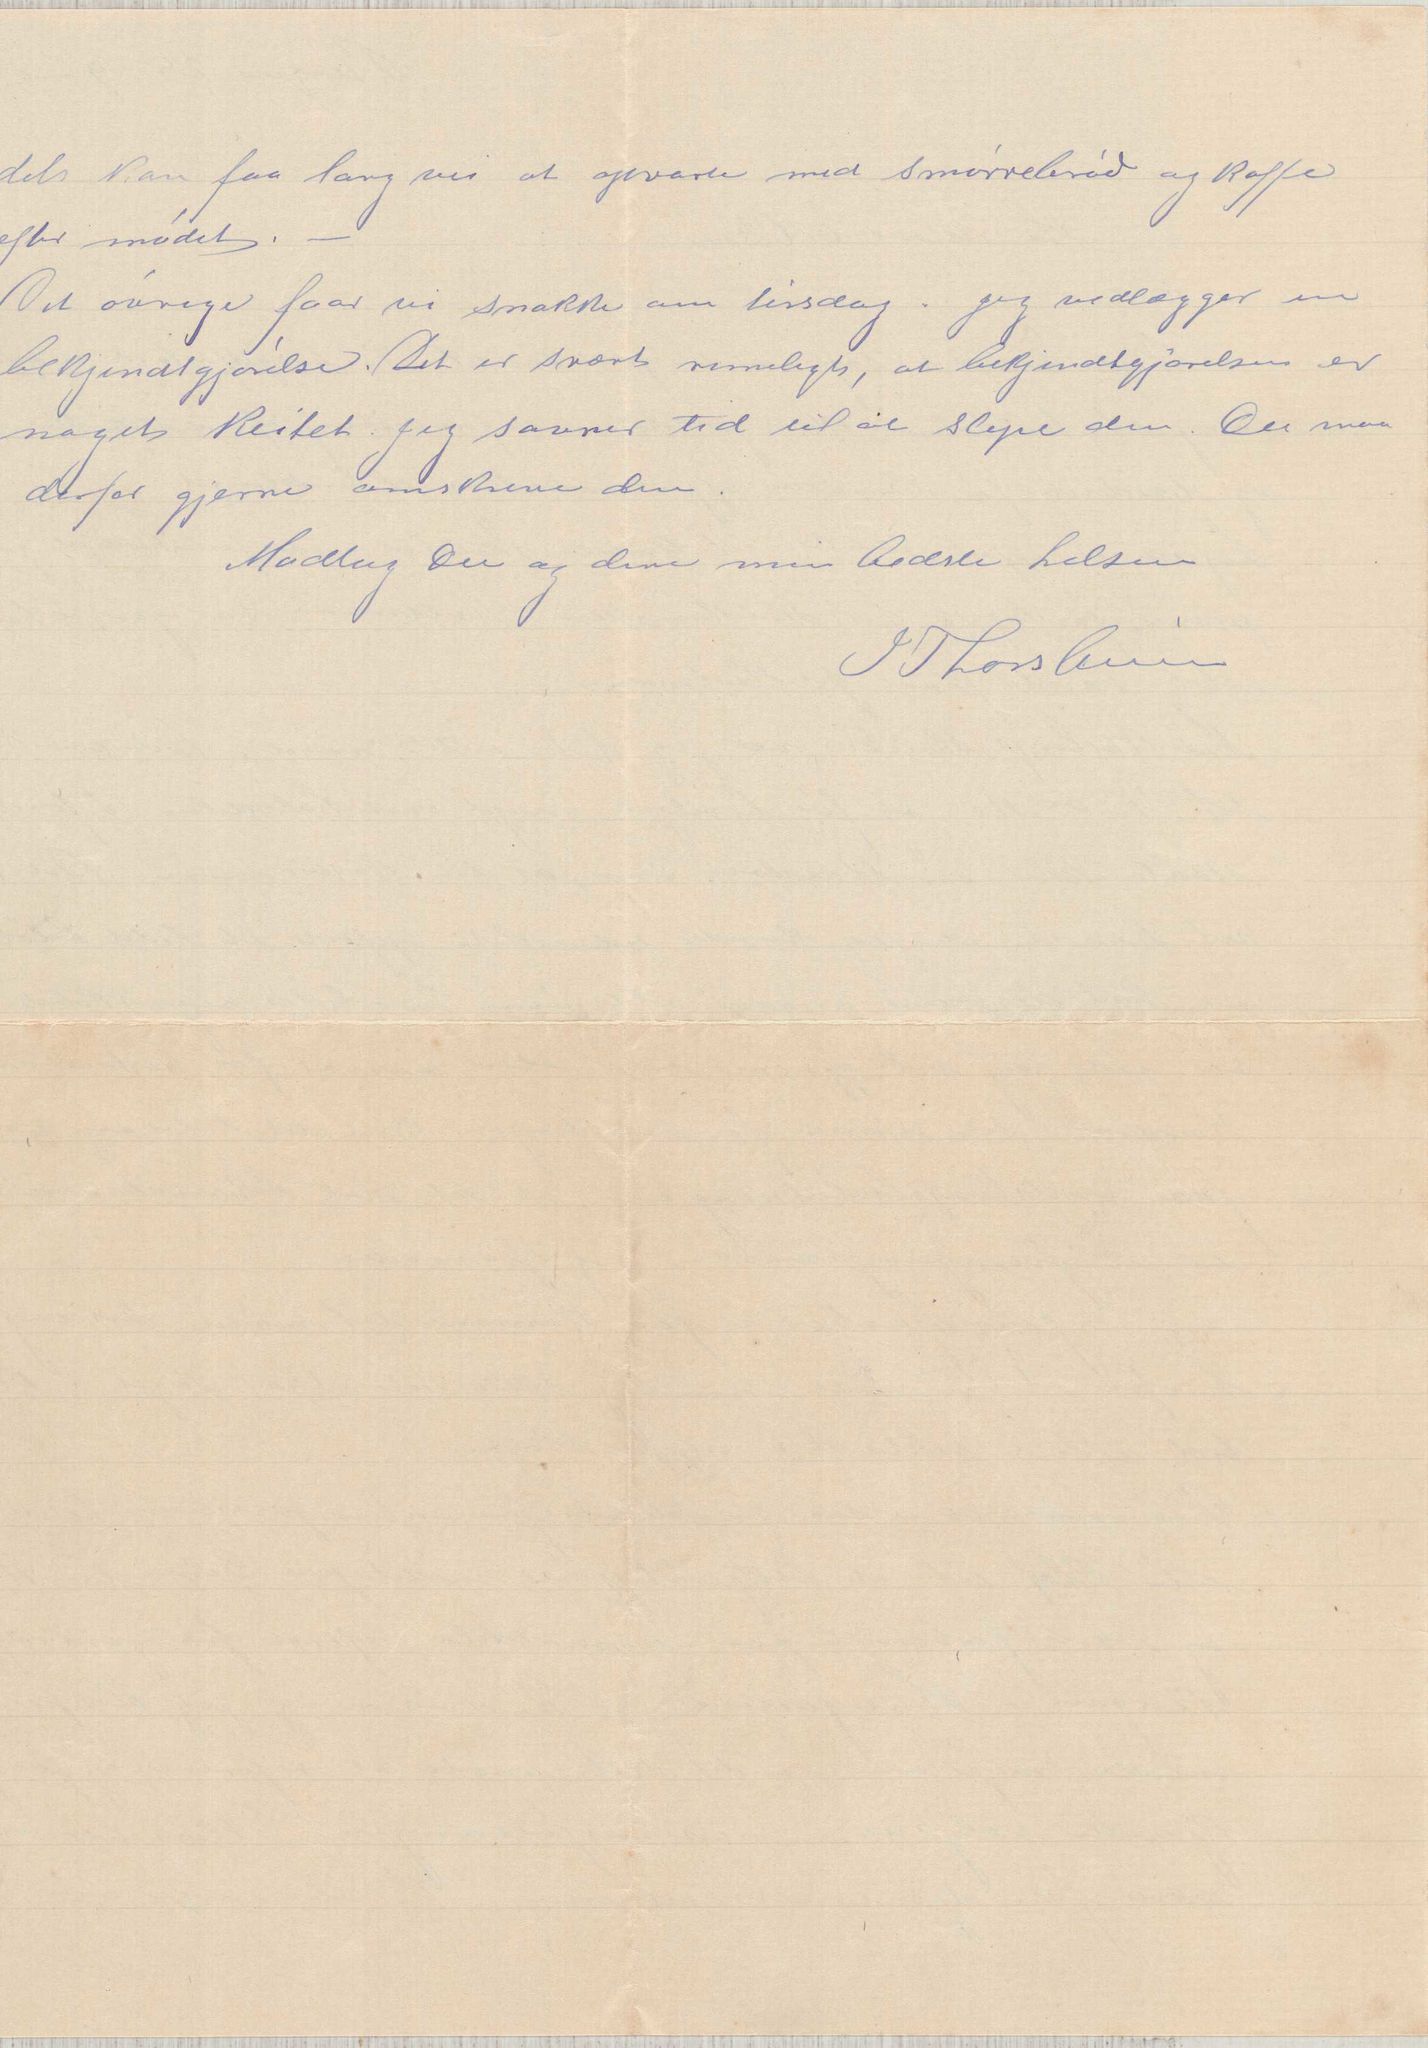 dels kan faa lang vei at opvarte med smørrebrød og kaffe
efter mødet. —
Det øvrige faar vi snakke om tirsdag. Jeg vedlægger en
bekjendtgjørelse. Det er svært rimeligt, at bekjendtgjørelsen er
noget keitet. Jeg savner tid til at slipe den. Du maa
derfor gjerne omskrive den.
Modtag Du og dine min bedste hilsen
J Thorsteinsen